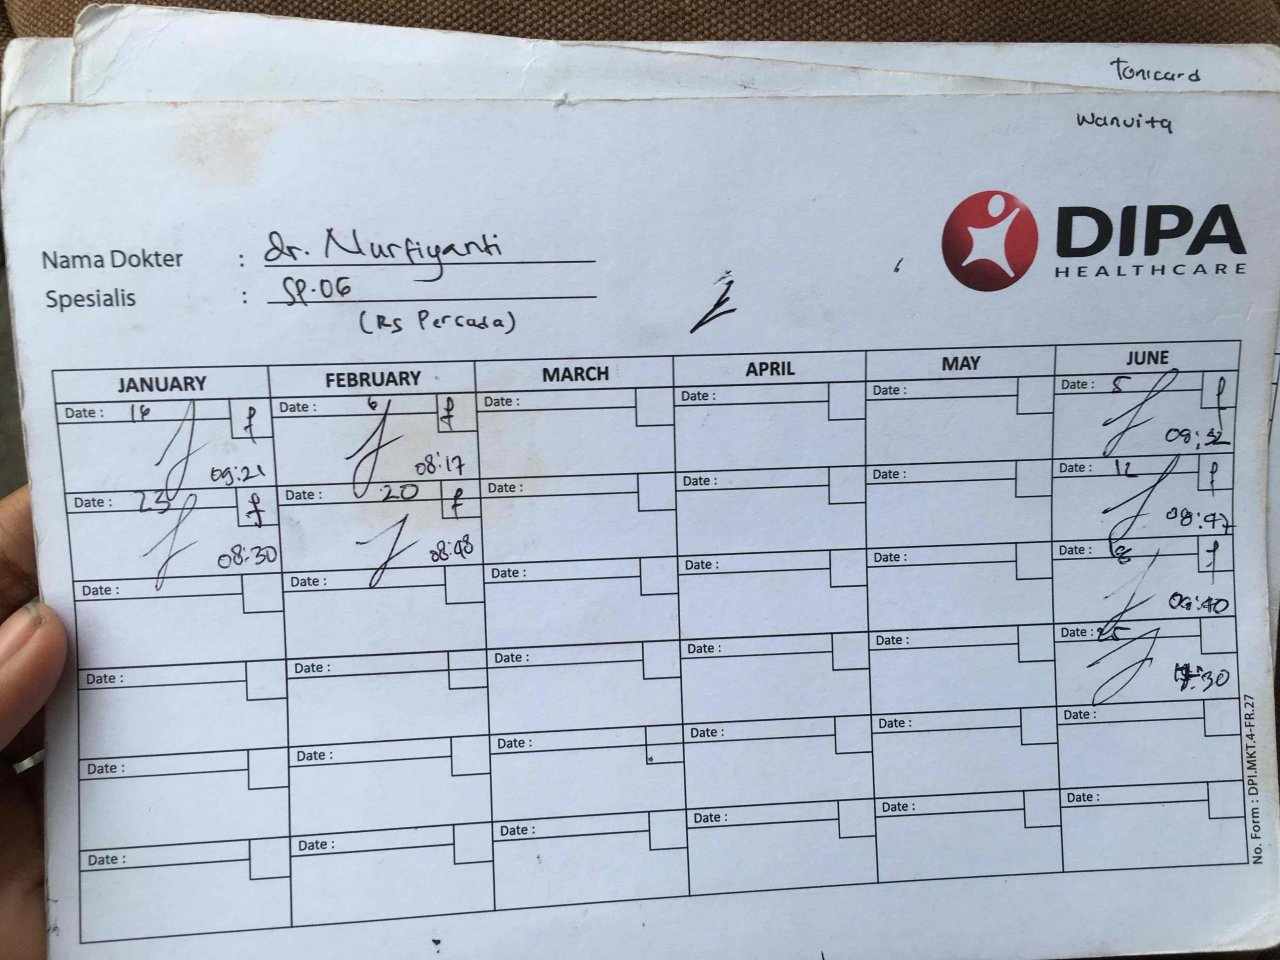 tonicard
wanvita
DIPA
HEALTHCARE
Nama Dokter : dr. Nurfiyanti
Spesialis : SP.OG
(RS Percada)
JANUARY FEBRUARY MARCH APRIL MAY JUNE
Date : 16 f Date : 6 f Date : Date : Date : Date : 5 f
09:21 08:17 08:32
Date : 23 f Date : 20 f Date : Date : Date : Date : 12 f
08:30 08:48 08:47
Date : Date : Date : Date : Date : Date : f
08:40
Date : Date : Date : Date : Date : Date : 25
:30
Date : Date : Date : Date : Date : Date :
Date : Date : Date : Date : Date : Date :
No. Form : DPI.MKT.4-FR.27